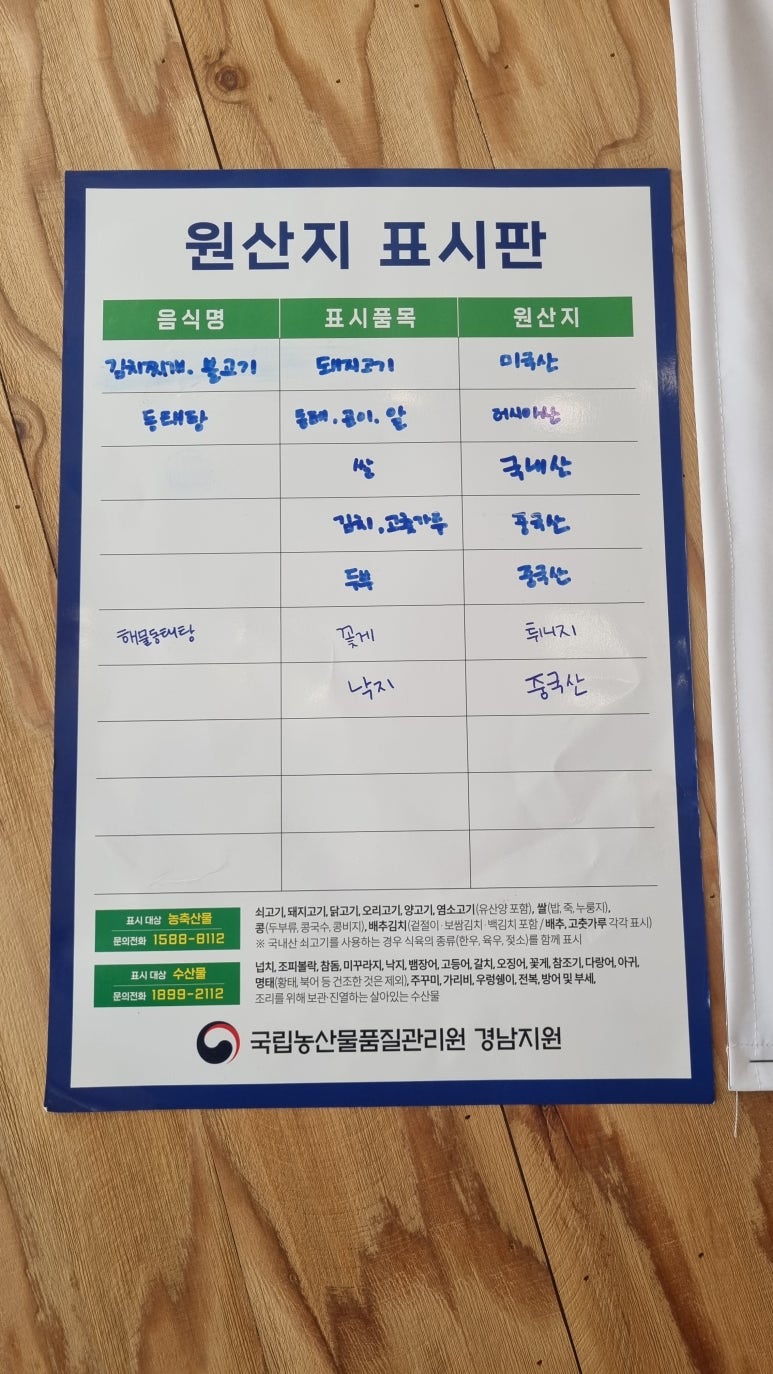 원산지 표시판
음식명 표시품목 원산지
김치찌개. 불고기 돼지고기 미국산
동태탕 동태. 곤이. 알 러시아산
쌀 국내산
김치. 고춧가루 중국산
두부 중국산
해물동태탕 꽃게 튀니지
낙지 중국산
표시 대상 농축산물
문의전화 1588-8112
쇠고기, 돼지고기, 닭고기, 오리고기, 양고기, 염소고기(유산양 포함), 쌀(밥, 죽, 누룽지),
콩(두부류, 콩국수, 콩비지), 배추김치(겉절이·보쌈김치·백김치 포함 / 배추, 고춧가루 각각 표시)
※ 국내산 쇠고기를 사용하는 경우 식육의 종류(한우, 육우, 젖소)를 함께 표시
표시 대상 수산물
문의전화 1899-2112
넙치, 조피볼락, 참돔, 미꾸라지, 낙지, 뱀장어, 고등어, 갈치, 오징어, 꽃게, 참조기, 다랑어, 아귀,
명태(황태, 북어 등 건조한 것은 제외), 주꾸미, 가리비, 우렁쉥이, 전복, 방어 및 부세,
조리를 위해 보관·진열하는 살아있는 수산물
국립농산물품질관리원 경남지원